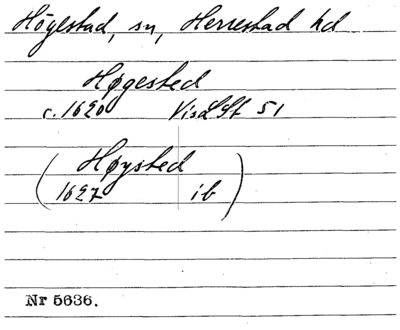 Högestad, sn, Herrestad hd
Høgested
c. 1620 VisLSt 51
(Høysted
1627 ib)
Nr 5636.